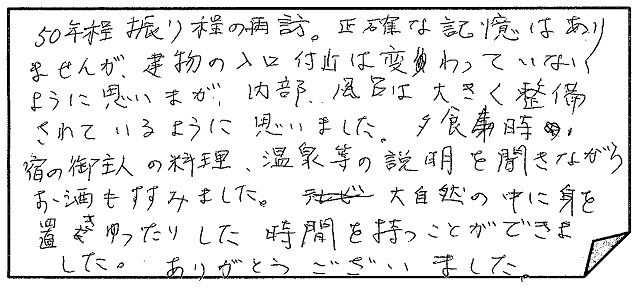 50年程振り程の再訪。正確な記憶はあり
ませんが、建物の入口付近は変わっていない
ように思いまが、内部、風呂は大きく整備
されているように思いました。夕食時、
宿の御主人の料理、温泉等の説明を聞きながら
お酒もすすみました。大自然の中に身を
置きゆったりした時間を持つことができま
した。ありがとうございました。